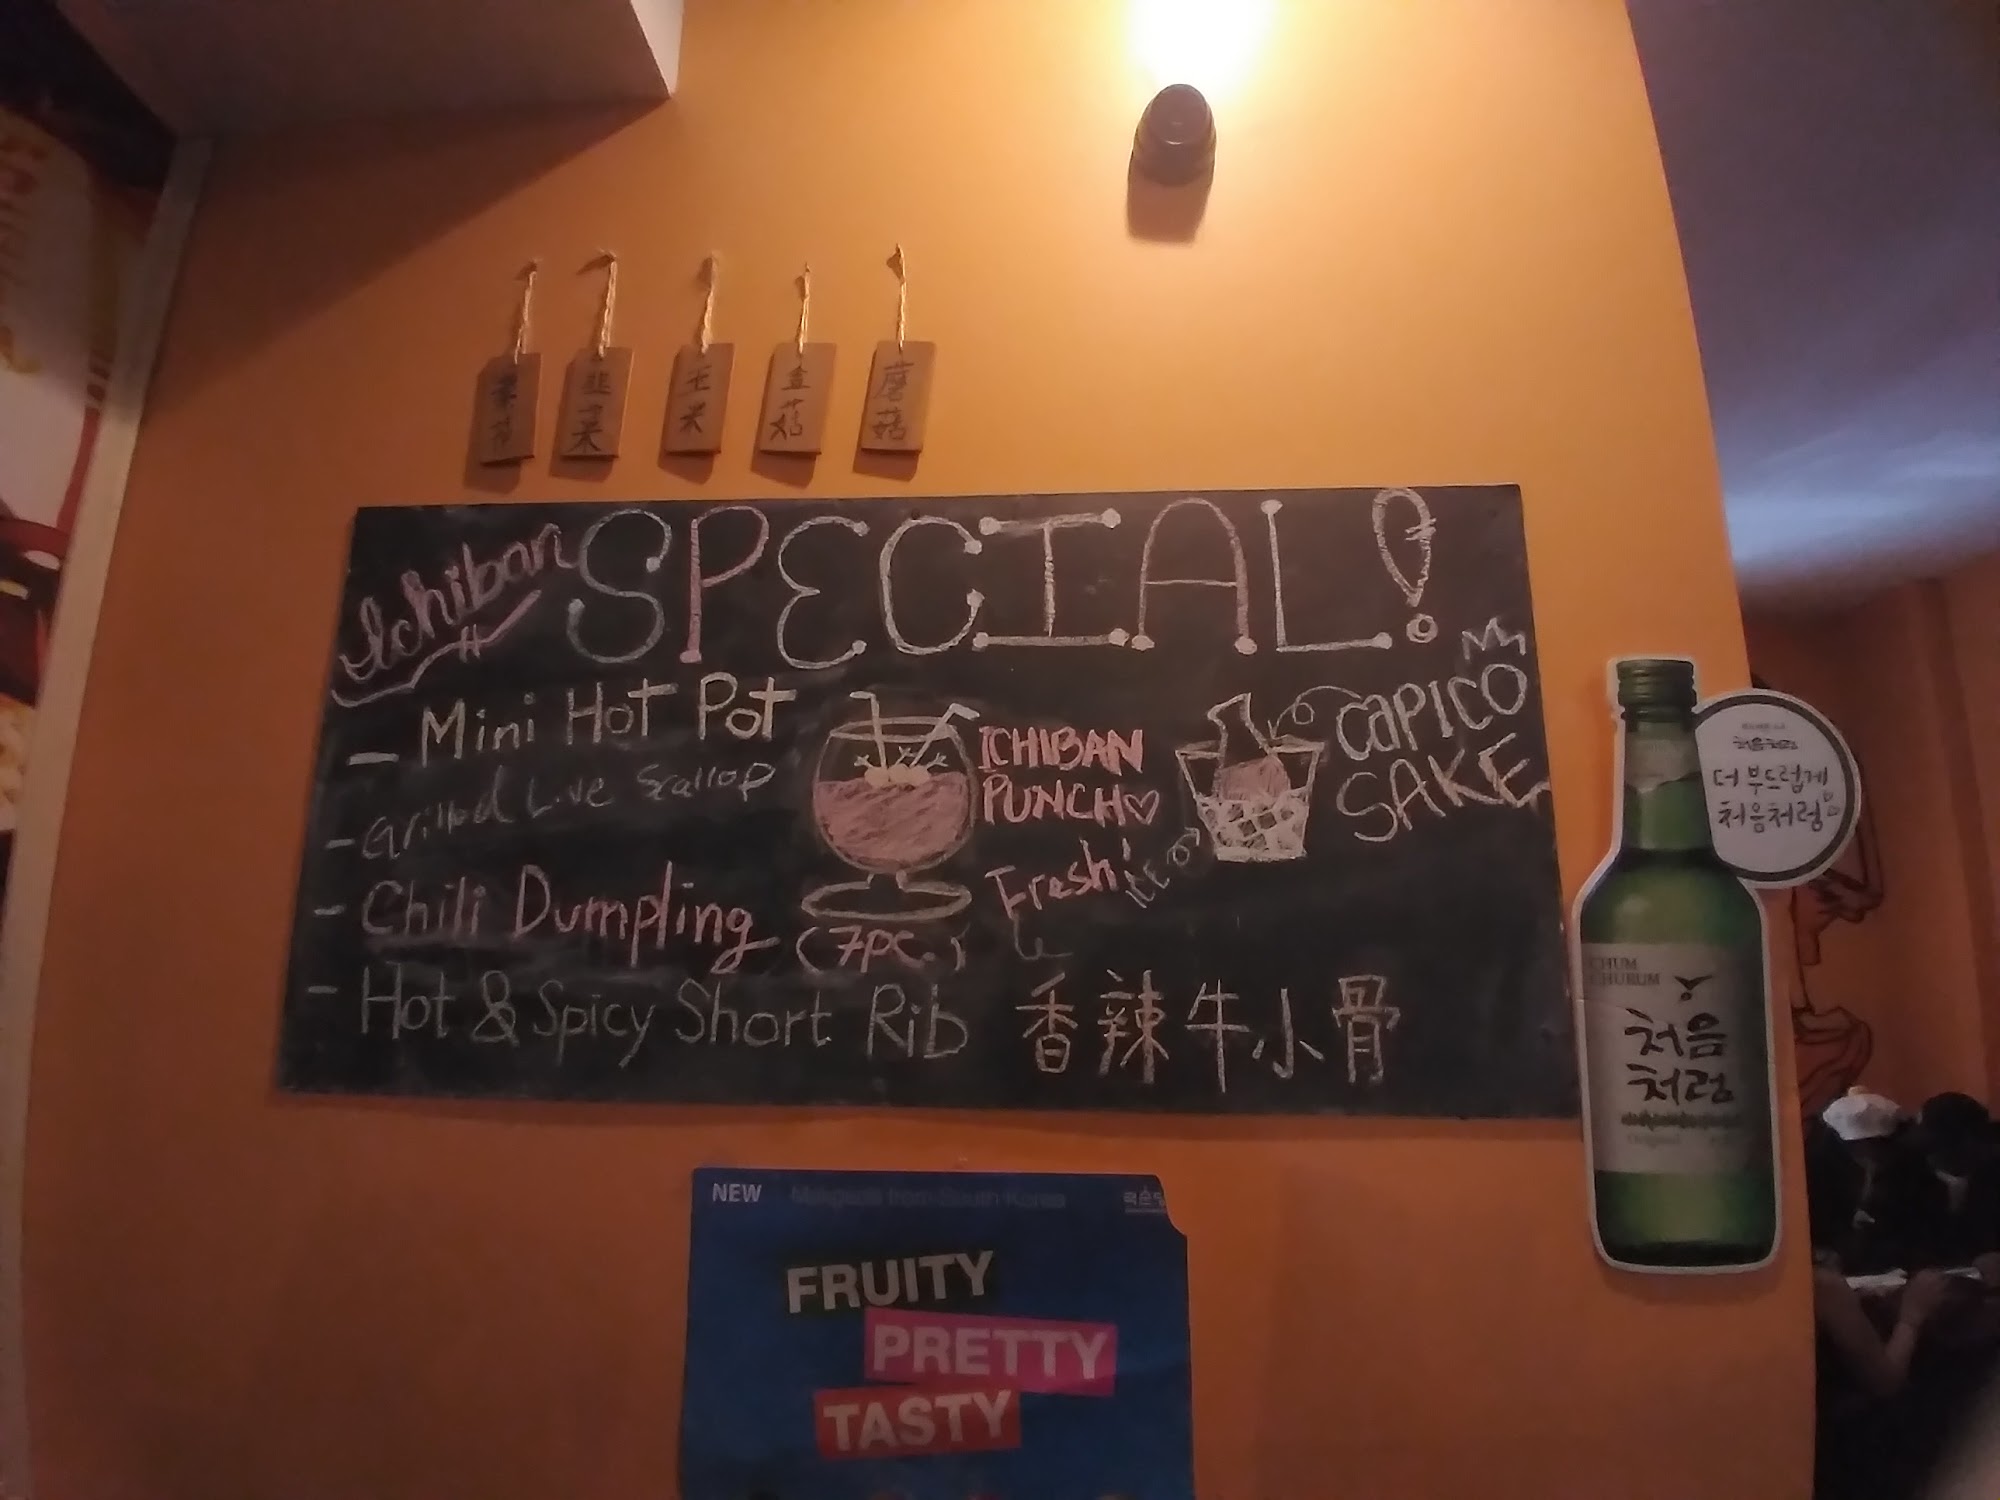 韭菜
玉米
金菇
蘑菇
Ichiban SPECIAL!
- Mini Hot Pot
- Grilled Live Scallop
- Chili Dumpling (7pc.)
- Hot & Spicy Short Rib 香辣牛小骨
ICHIBAN
PUNCH♡
Fresh!
CAPICO
SAKE
처음처럼
더 부드럽게
처음처럼
CHUM
CHURUM
처음
처럼
NEW Makgeolli from South Korea
FRUITY
PRETTY
TASTY